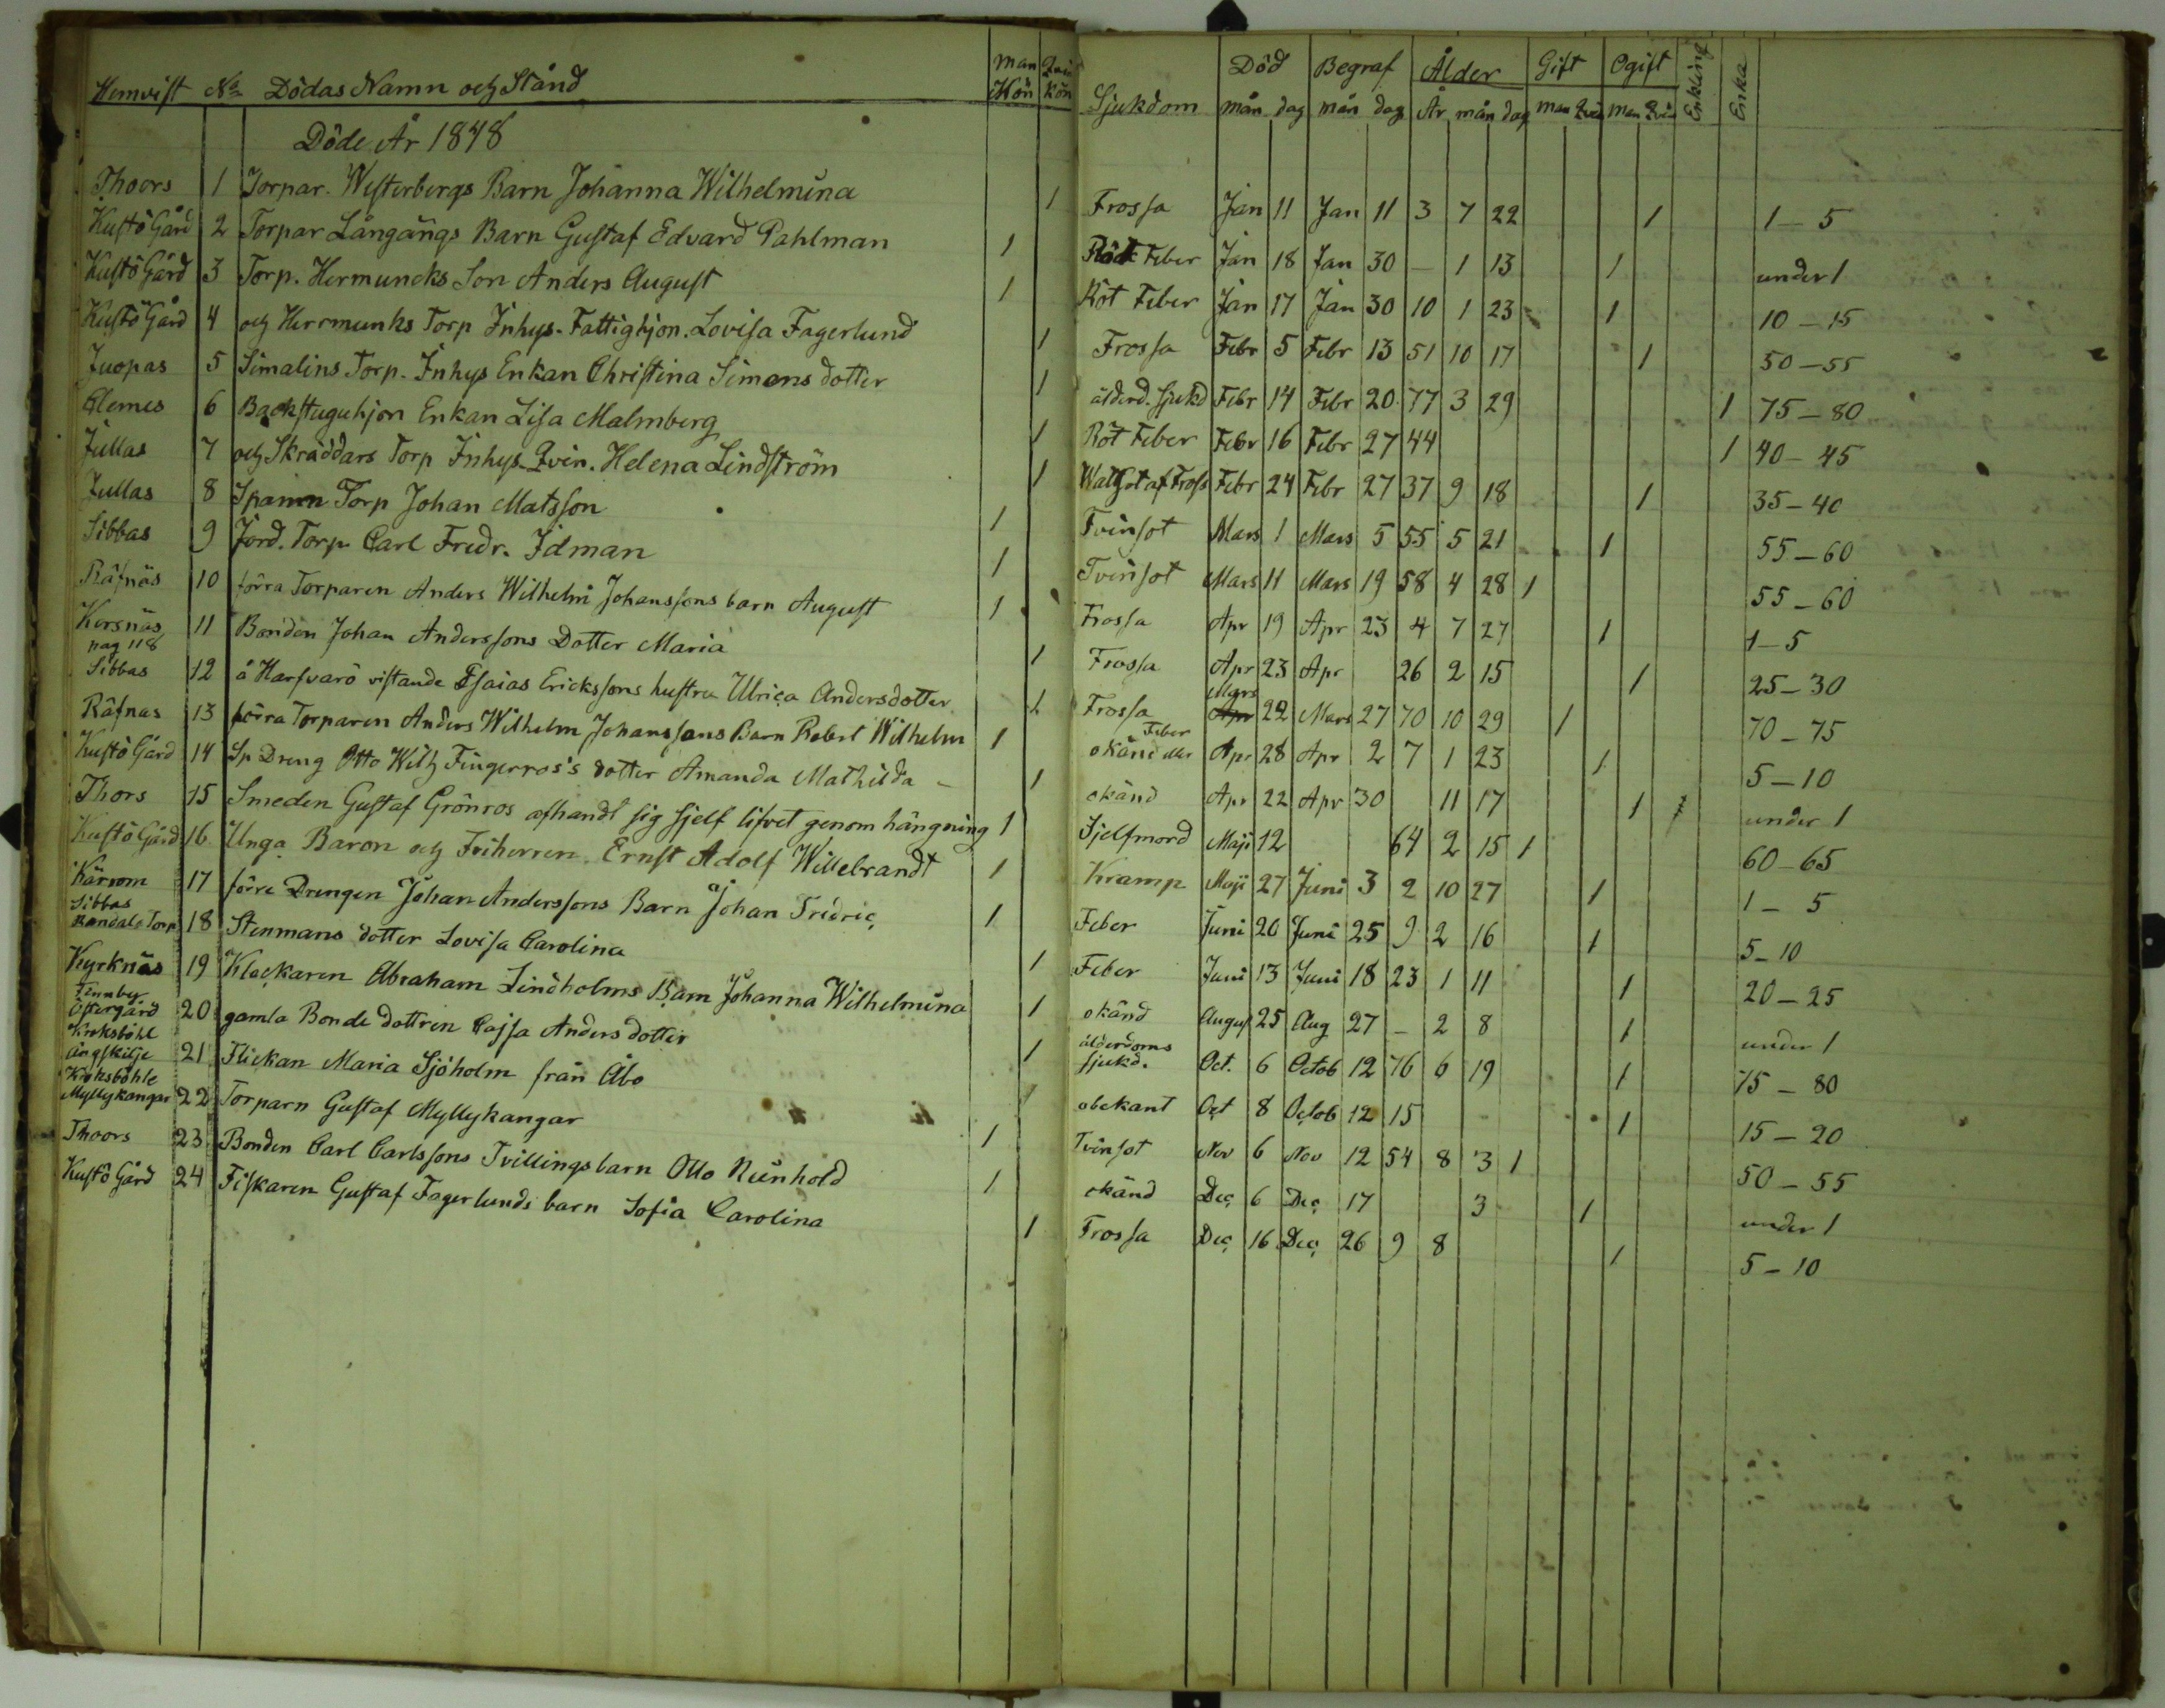 Hemvist No Dödas Namn och Stånd Man Kön Qvin Kön Sjukdom Död mån dag Begraf mån dag Ålder År mån dag Gift Man Qvin Ogift Man Qvin Enkling Enka
Döde År 1848
Thoors 1 Torpar. Westerbergs Barn Johanna Wilhelmina 1 Frossa Jan 11 Jan 11 3 7 22 1 1–5
Kustö Gård 2 Torpar Långängs Barn Gustaf Edvard Pahlman 1 Röt Feber Jan 18 Jan 30 – 1 13 1 under 1
Kustö Gård 3 Torp. Hermuncks Son Anders August 1 Röt Feber Jan 17 Jan 30 10 1 23 1 10–15
Kustö Gård 4 och Herrmunks Torp Inhys. Fattighjon. Lovisa Fagerlund 1 Frossa Febr 5 Febr 13 51 10 17 1 50–55
Juopas 5 Simalins Torp. Inhys Enkan Christina Simons dotter 1 ålderd. sjukd Febr 14 Febr 20 77 3 29 1 75–80
Clemes 6 Backstuguhjon Enkan Lisa Malmberg 1 Röt Feber Febr 16 Febr 27 44 1 40–45
Jullas 7 och Skräddars Torp Inhys. Qvin. Helena Lindström 1 Watsot af Fross Febr 24 Febr 27 37 9 18 1 35–40
Jullas 8 Spanen Torp Johan Matsson 1 Tvinsot Mars 1 Mars 5 55 5 21 1 55–60
Sibbas 9 Jord. Torp. Carl Fredr. Idman 1 Tvinsot Mars 11 Mars 19 58 4 28 1 55–60
Räfnäs 10 förra Torparen Anders Wilhelm Johanssons barn August 1 Frossa Apr 19 Apr 23 4 7 27 1 1–5
Kersnäs pag 118 11 Bonden Johan Anderssons Dotter Maria 1 Frossa Apr 23 Apr 26 2 15 1 25–30
Sibbas 12 å Harfvarö vistande Esaias Erickssons hustru Ulrica Andersdotter 1 Frossa Mars 22 Mars 27 70 10 29 1 70–75
Räfnas 13 förra Torparen Anders Wilhelm Johanssons Barn Robert Wilhelm 1 okänd eller Feber Apr 28 Apr 2 7 1 23 1 5–10
Kustö Gård 14 Sp Dreng Otto Wilh Fingerros's dotter Amanda Mathilda – 1 okänd Apr 22 Apr 30 11 17 1 under 1
Thors 15 Smeden Gustaf Grönros afhandt sig sjelf lifvet genom hängning 1 Sjelfmord Maji 12 64 2 15 1 60–65
Kustö Gård 16 Unga Baron och Friherren. Ernst Adolf Willebrandt 1 Kramp Maji 27 Juni 3 2 10 27 1 1–5
Kärrom 17 förre Drengen Johan Anderssons Barn Johan Fredric 1 Feber Juni 20 Juni 25 9 2 16 1 5–10
Sibbas Randals Torp 18 Stenmans dotter Lovisa Carolina 1 Feber Juni 13 Juni 18 23 1 11 1 20–25
Kyrknäs 19 Klockaren Abraham Lindholms Barn Johanna Wilhelmina 1 okänd August 25 Aug 27 – 2 8 1 under 1
Finnby Östergård 20 gamla Bonde dottren Cajsa Anders dotter 1 ålderdoms sjukd. Oct. 6 Octob 12 76 6 19 1 75–80
Kroksböhle Ängskilje 21 Flickan Maria Sjöholm från Åbo 1 obekant Oct 8 Octob 12 15 1 15–20
Kroksböhle Myllykangar 22 Torparn Gustaf Myllykangar 1 Tvinsot Nov 6 Nov 12 54 8 3 1 50–55
Thoors 23 Bonden Carl Carlssons Tvillings barn Otto Reinhold 1 okänd Dec 6 Dec 17 3 1 under 1
Kustö Gård 24 Fiskaren Gustaf Fagerlunds barn Sofia Carolina 1 Frossa Dec 16 Dec 26 9 8 1 5–10